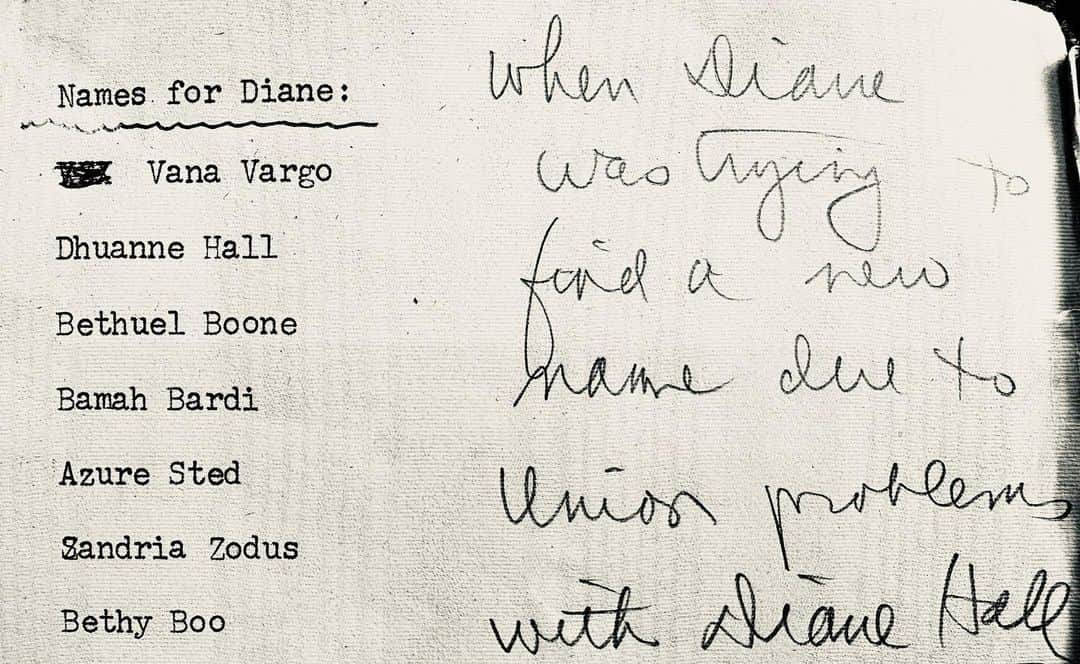 Names for Diane:
Vana Vargo
Dhuanne Hall
Bethuel Boone
Bamah Bardi
Azure Sted
Zandria Zodus
Bethy Boo
when Diane
was trying to
find a new
name due to
Union problems
with Diane Hall